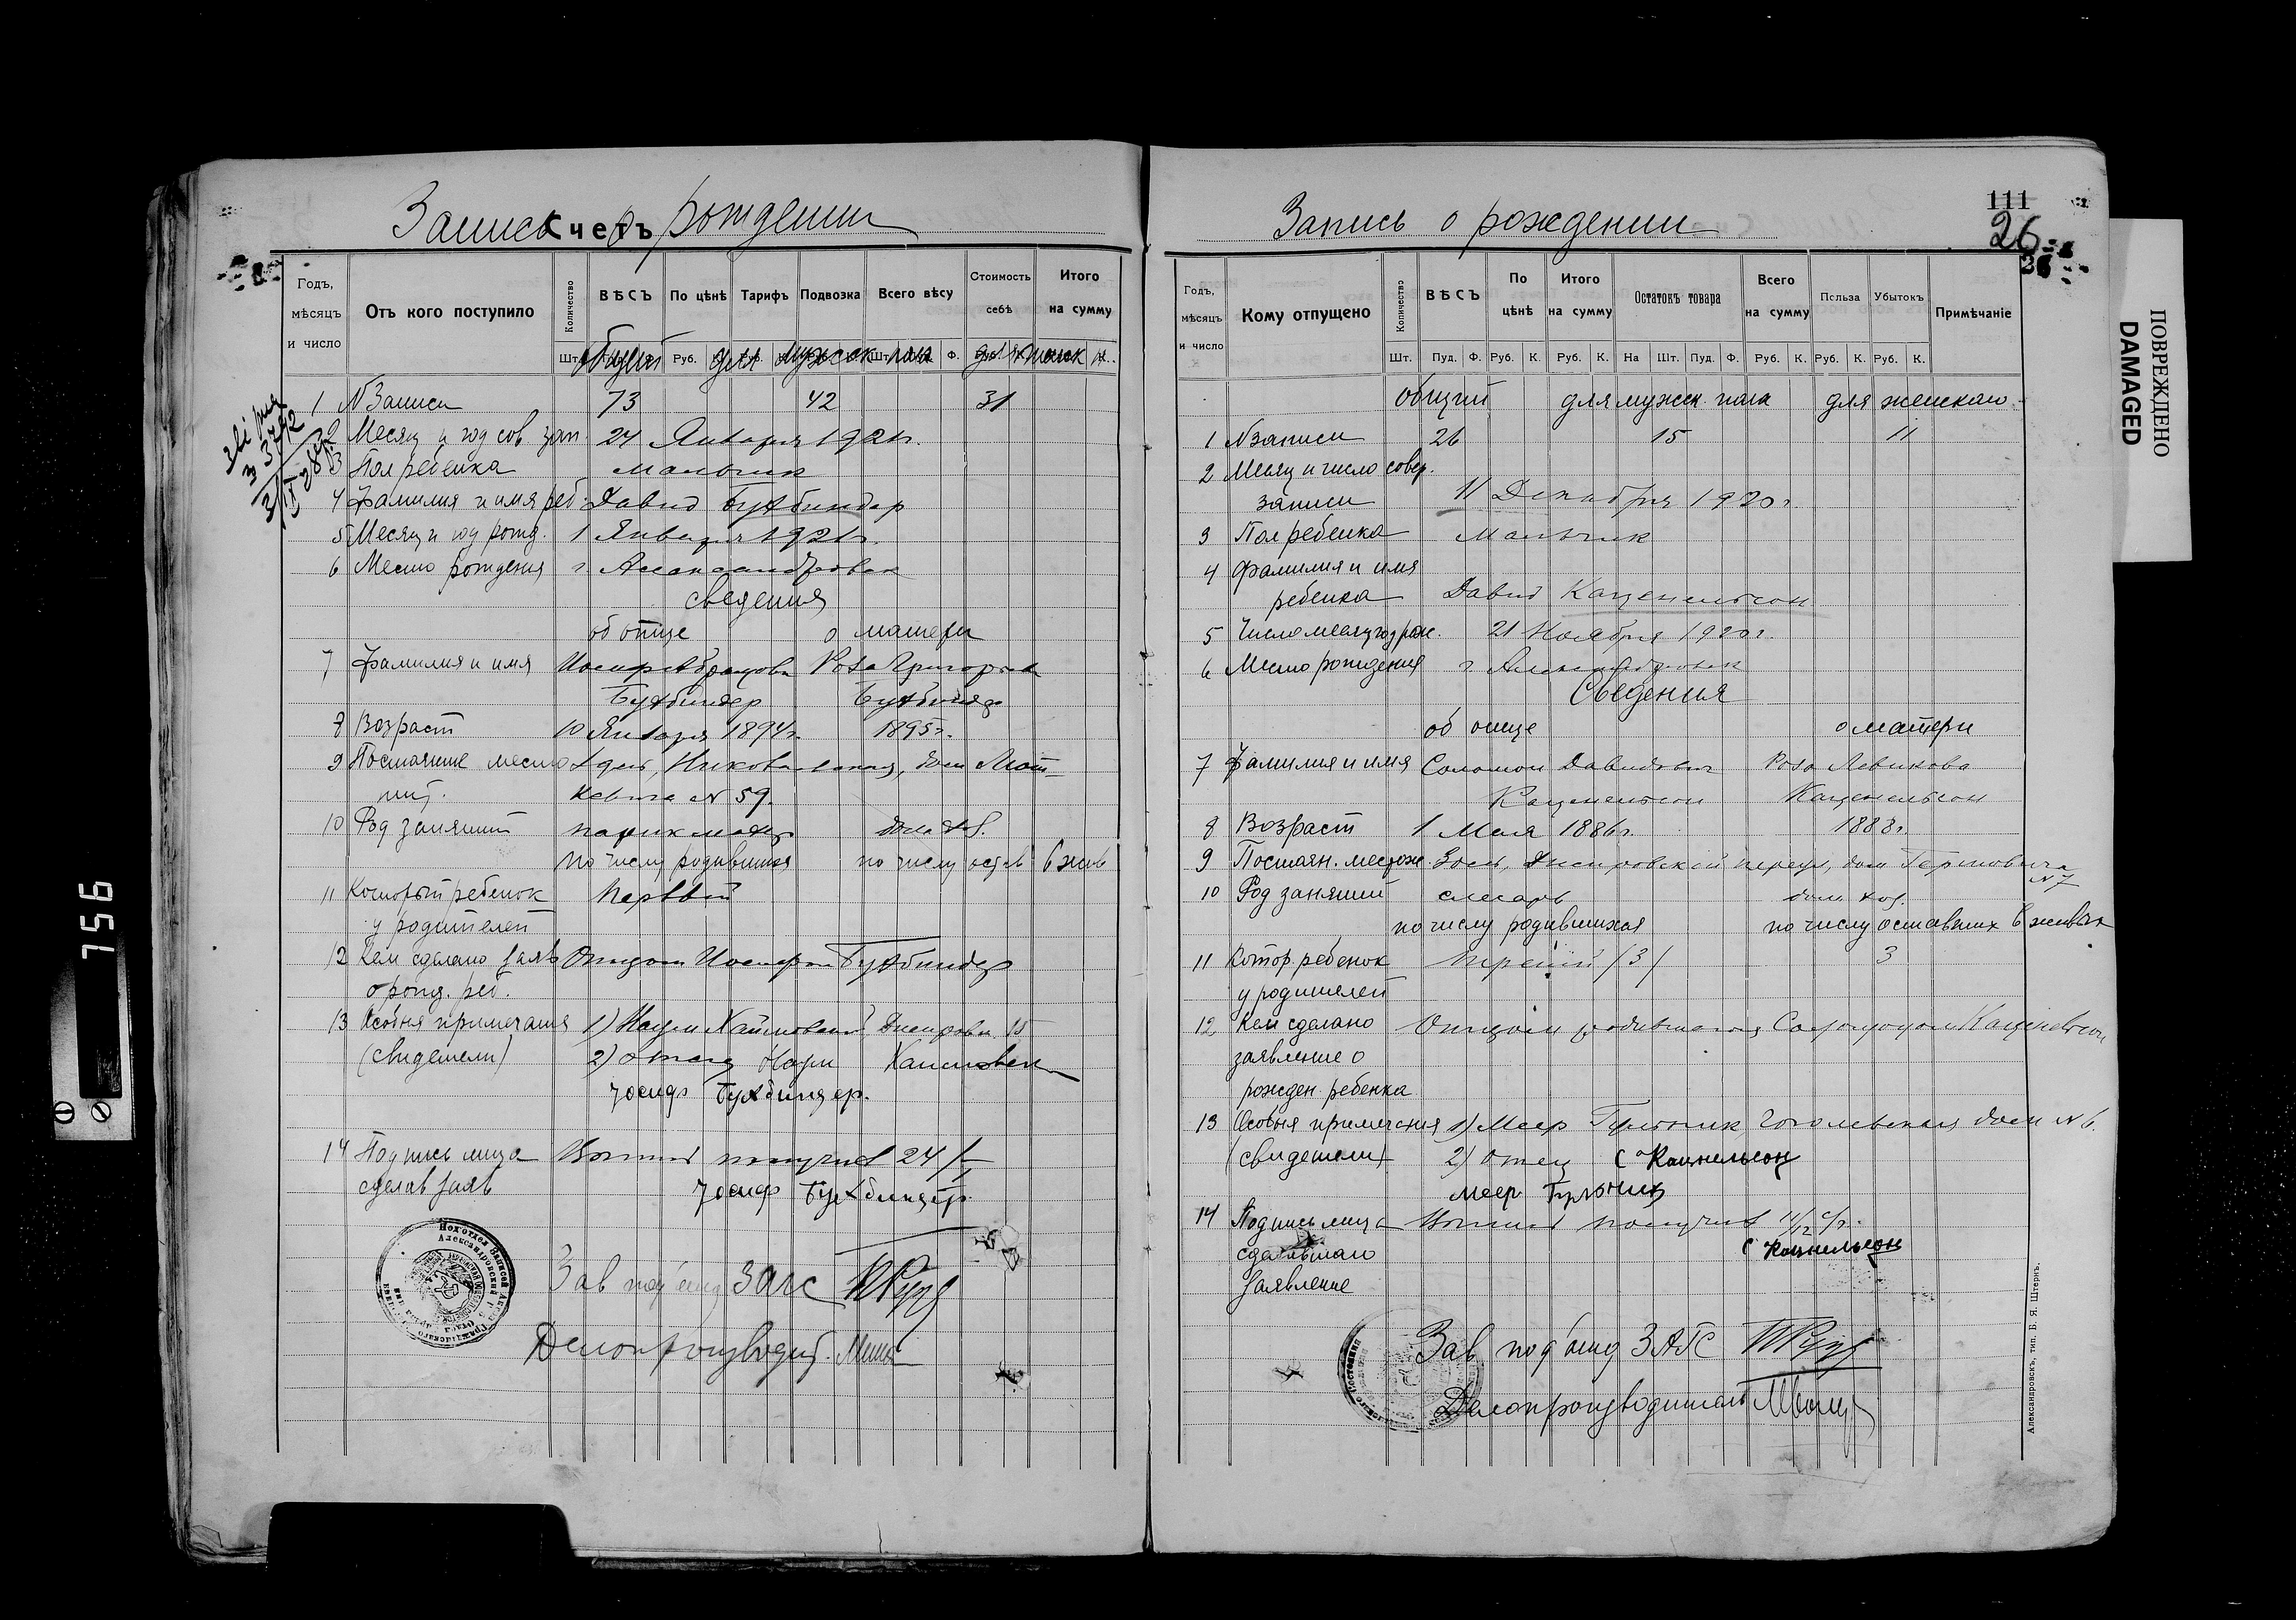 Запись о рождении
Счетъ
Годъ, мѣсяцъ и число
Отъ кого поступило
Количество
ВѢСЪ
По цѣнѣ
Тарифъ
Подвозка
Всего вѣсу
Стоимость себѣ
Итого на сумму
общий для мужск пола для женск п.
1 N Записи 73 42 31
2 Месяц и год сов. зап. 24 Января 1921 г.
3 Пол ребенка мальчик
4 Фамилия и имя реб. Давид Бухбиндер
5 Месяц и год рожд. 1 Января 1921 г.
6 Место рождения г Александровск
Сведения
об отце о матери
7 Фамилия и имя Иосиф Абрамович Роза Григорьев
Бухбиндер Бухбиндер
8 Возраст 10 Января 1894 г. 1895 г.
9 Постоянное место
жит. N 59.
10 Род занятий парикмахер дом. хоз.
по числу родившихся по числу остав в жив
11 Который ребенок первый
у родителей
12 Кем сделано заяв Отцом Иосифом Бухбиндер
о рожд. реб.
13 Особыя примечания 1) Наум Хаимович, Днепровск. 15
(свидетели) 2) отец Наум
Иосиф Бухбиндер.
14 Подпись лица получил 24/I
сделав заяв Иосиф Бухбиндер.
Зав под'отд ЗАГС
Делопроизводит.
Запись о рождении
111
26
26
Годъ, мѣсяцъ и число
Кому отпущено
Количество
ВѢСЪ
По цѣнѣ
Итого на сумму
Остатокъ товара
Всего на сумму
Польза
Убытокъ
Примѣчаніе
Шт. Пуд. Ф. Руб. К. Руб. К. На Шт. Пуд. Ф. Руб. К. Руб. К. Руб. К.
общий для мужск пола для женскаго
1 N записи 26 15 11
2 Месяц и число совер.
записи 11 Декабря 1920 г.
3 Пол ребенка Мальчик
4 Фамилия и имя
ребенка Давид Каценельсон
5 Число месяц год рож. 21 Ноября 1920 г.
6 Место рождения г Александровск
Сведения
об отце о матери
7 Фамилия и имя Соломон Давидович Роза Левикова
Каценельсон Каценельсон
8 Возраст 1 Мая 1886 г. 1888 г.
9 Постоян. местож. Здесь, Днепровский переул, дом N 7
10 Род занятий слесарь дом. хоз.
по числу родившихся по числу оставших в живых
11 Котор. ребенок третий (3) 3
у родителей
12 Кем сделано Отцом Соломоном Каценельсон
заявление о
рожден. ребенка
13 Особыя примечания 1) Меер Гоголевская дом N 6.
(свидетели) 2) Отец С Кацнельсон
Меер
14 Подпись лица получил 11/12
сделавшаго С Кацнельсон
заявление
Зав под'отд ЗАГС
Делопроизводитель
Александровскъ, тип. Б. Я. Штернъ.
ПОВРЕЖДЕНО
DAMAGED
756